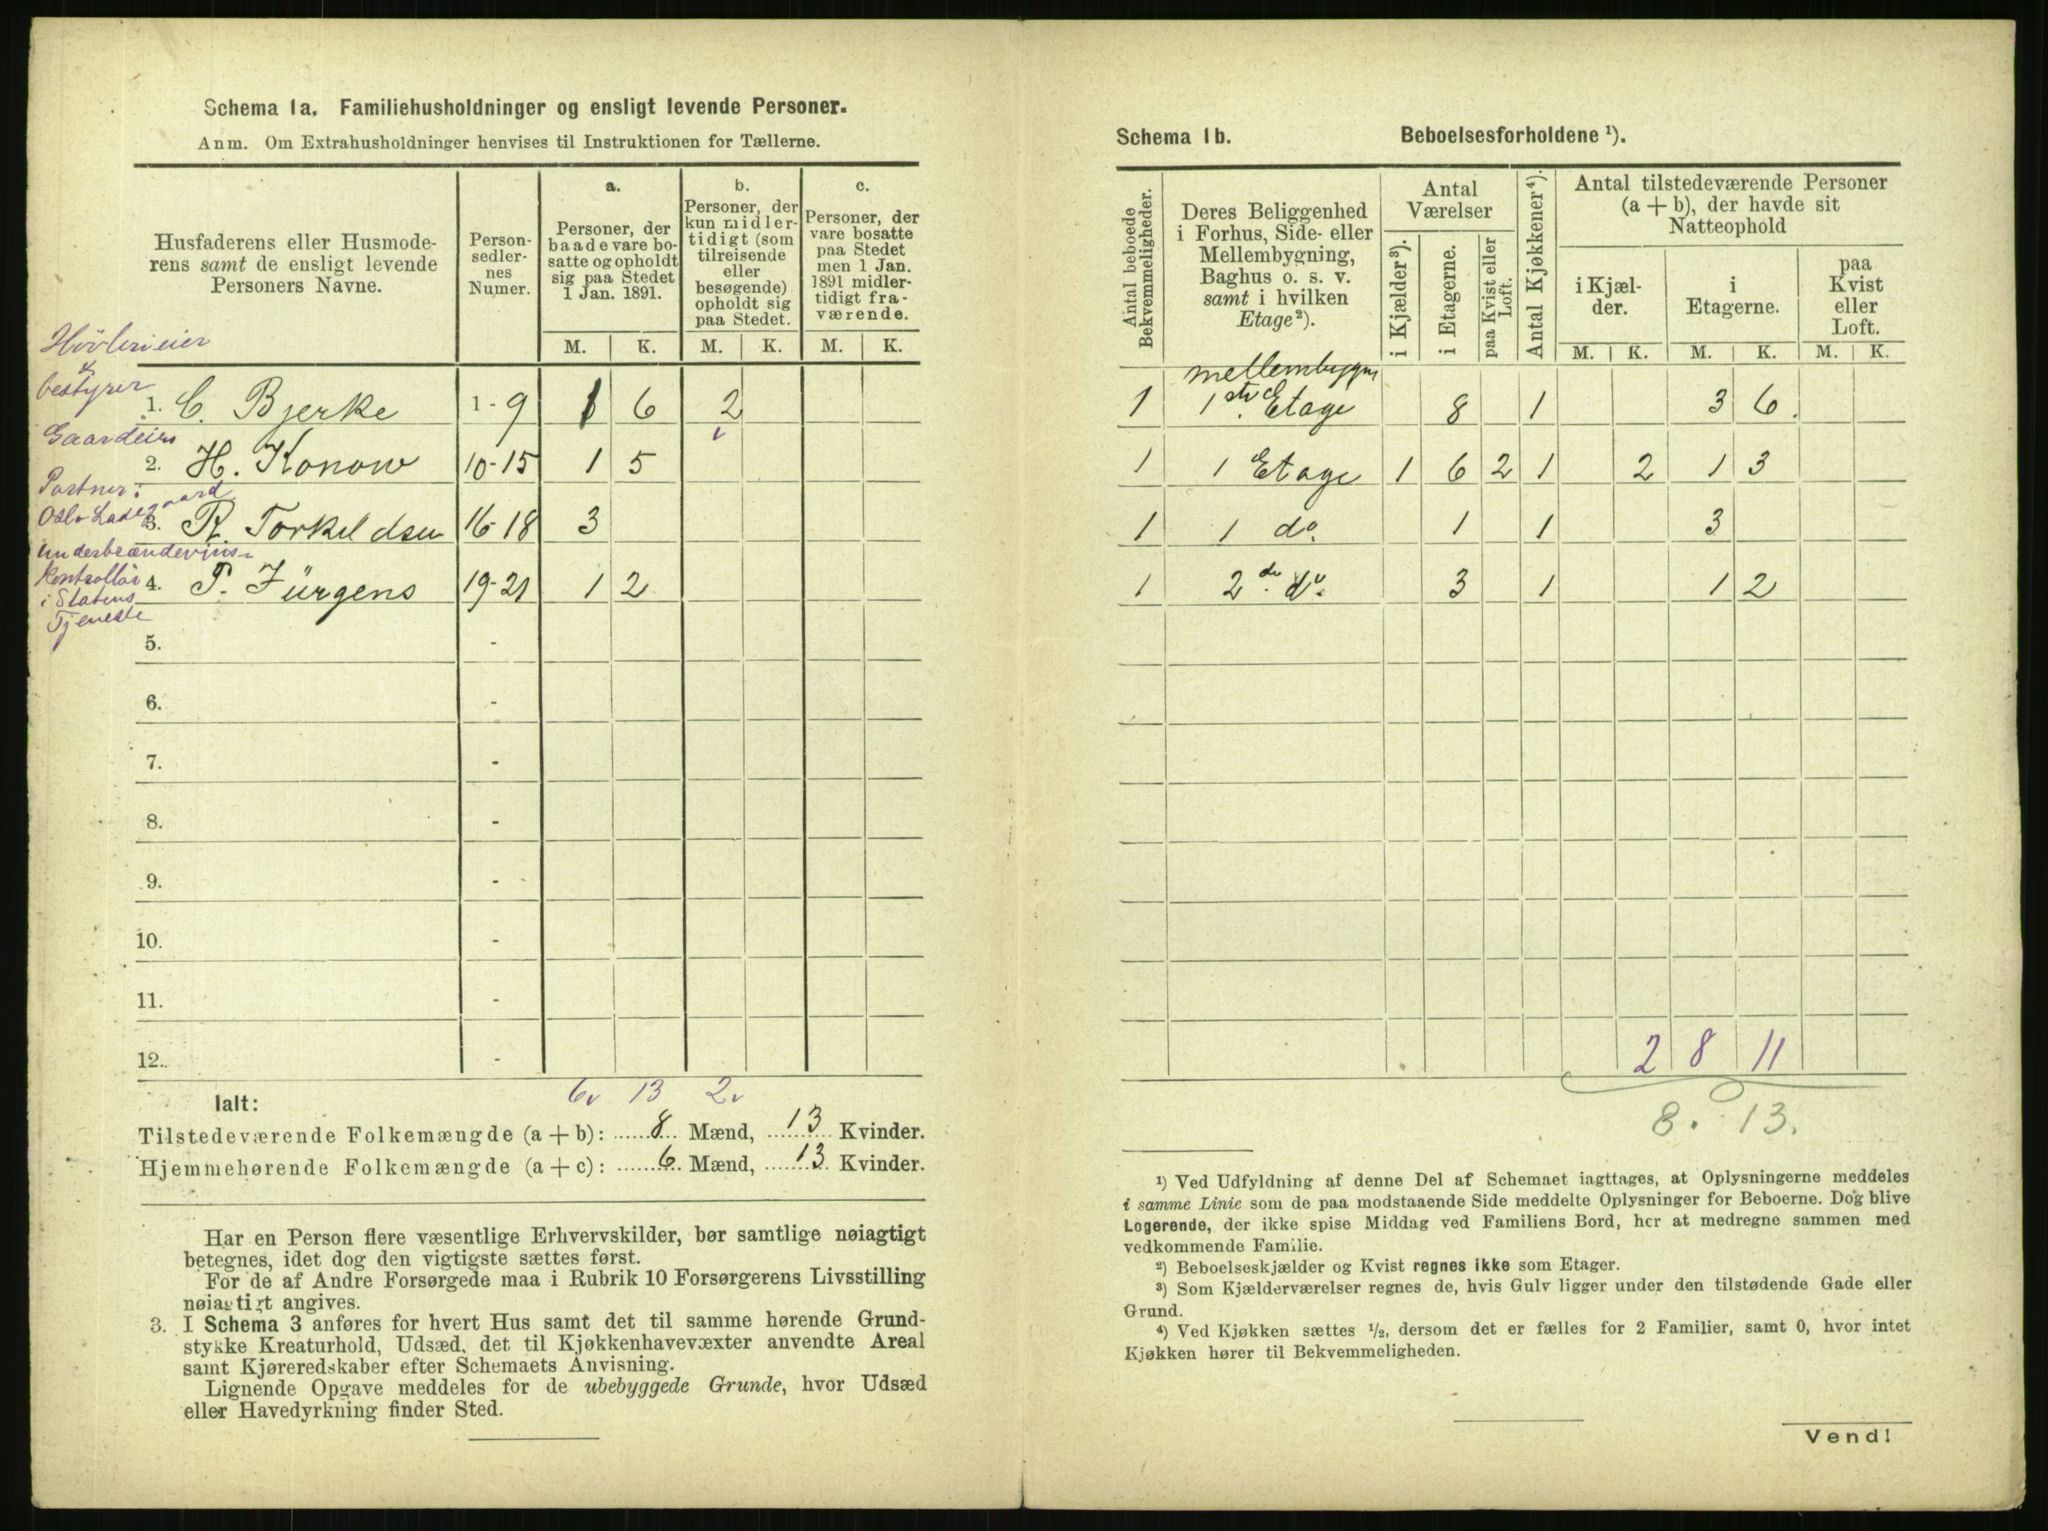 Schema 1a. Familiehusholdninger og ensligt levende Personer.
Anm. Om Extrahusholdninger henvises til Instruktionen for Tællerne.
Husfaderens eller Husmode-
rens samt de ensligt levende
Personers Navne.
Person-
sedler-
nes
Numer.
a.
Personer, der
baade vare bo-
satte og opholdt
sig paa Stedet
1 Jan. 1891.
b.
Personer, der
kun midler-
tidigt (som
tilreisende
eller
besøgende)
opholdt sig
paa Stedet.
c.
Personer, der
vare bosatte
paa Stedet
men 1 Jan.
1891 midler-
tidigt fra-
værende.
M. K. M. K. M. K.
Høvlerieier
&
bestyrer
1. C. Bjerke 1-9 1 6 2
Gaardeier
2. H. Konow 10-15 1 5
Portner:
Oslo Ladegaard
3. R. Torkeldsen 16-18 3
Underbrændevins-
kontrollør
4. P. Jürgens 19-21 1 2
i Statens
Tjeneste
5. -
6. -
7. -
8. -
9. -
10. -
11. -
12. -
6 13 2
Ialt:
Tilstedeværende Folkemængde (a + b): 8 Mænd, 13 Kvinder.
Hjemmehørende Folkemængde (a + c): 6 Mænd, 13 Kvinder.
Har en Person flere væsentlige Erhvervskilder, bør samtlige nøiagtigt
betegnes, idet dog den vigtigste sættes først.
For de af Andre Forsørgede maa i Rubrik 10 Forsørgerens Livsstilling
nøiagtigt angives.
3. I Schema 3 anføres for hvert Hus samt det til samme hørende Grund-
stykke Kreaturhold, Udsæd, det til Kjøkkenhavevæxter anvendte Areal
samt Kjøreredskaber efter Schemaets Anvisning.
Lignende Opgave meddeles for de ubebyggede Grunde, hvor Udsæd
eller Havedyrkning finder Sted.
Schema 1b. Beboelsesforholdene ¹).
Antal beboede
Bekvemmeligheder.
Deres Beliggenhed
i Forhus, Side- eller
Mellembygning,
Baghus o. s. v.
samt i hvilken
Etage²).
Antal
Værelser
i Kjælder³).
i Etagerne.
paa Kvist eller
Loft.
Antal Kjøkkener⁴).
Antal tilstedeværende Personer
(a + b), der havde sit
Natteophold
i Kjæl-
der.
i
Etagerne.
paa
Kvist
eller
Loft.
M. K. M. K. M. K.
mellembygn
1 1ste Etage 8 1 3 6.
1 1 Etage 1 6 2 1 2 1 3
1 1 do. 1 1 3
1 2de. do. 3 1 1 2
2 8 11
8. 13.
¹) Ved Udfyldning af denne Del af Schemaet iagttages, at Oplysningerne meddeles
i samme Linie som de paa modstaaende Side meddelte Oplysninger for Beboerne. Dog blive
Logerende, der ikke spise Middag ved Familiens Bord, her at medregne sammen med
vedkommende Familie.
²) Beboelseskjælder og Kvist regnes ikke som Etager.
³) Som Kjælderværelser regnes de, hvis Gulv ligger under den tilstødende Gade eller
Grund.
⁴) Ved Kjøkken sættes ½, dersom det er fælles for 2 Familier, samt 0, hvor intet
Kjøkken hører til Bekvemmeligheden.
Vend!